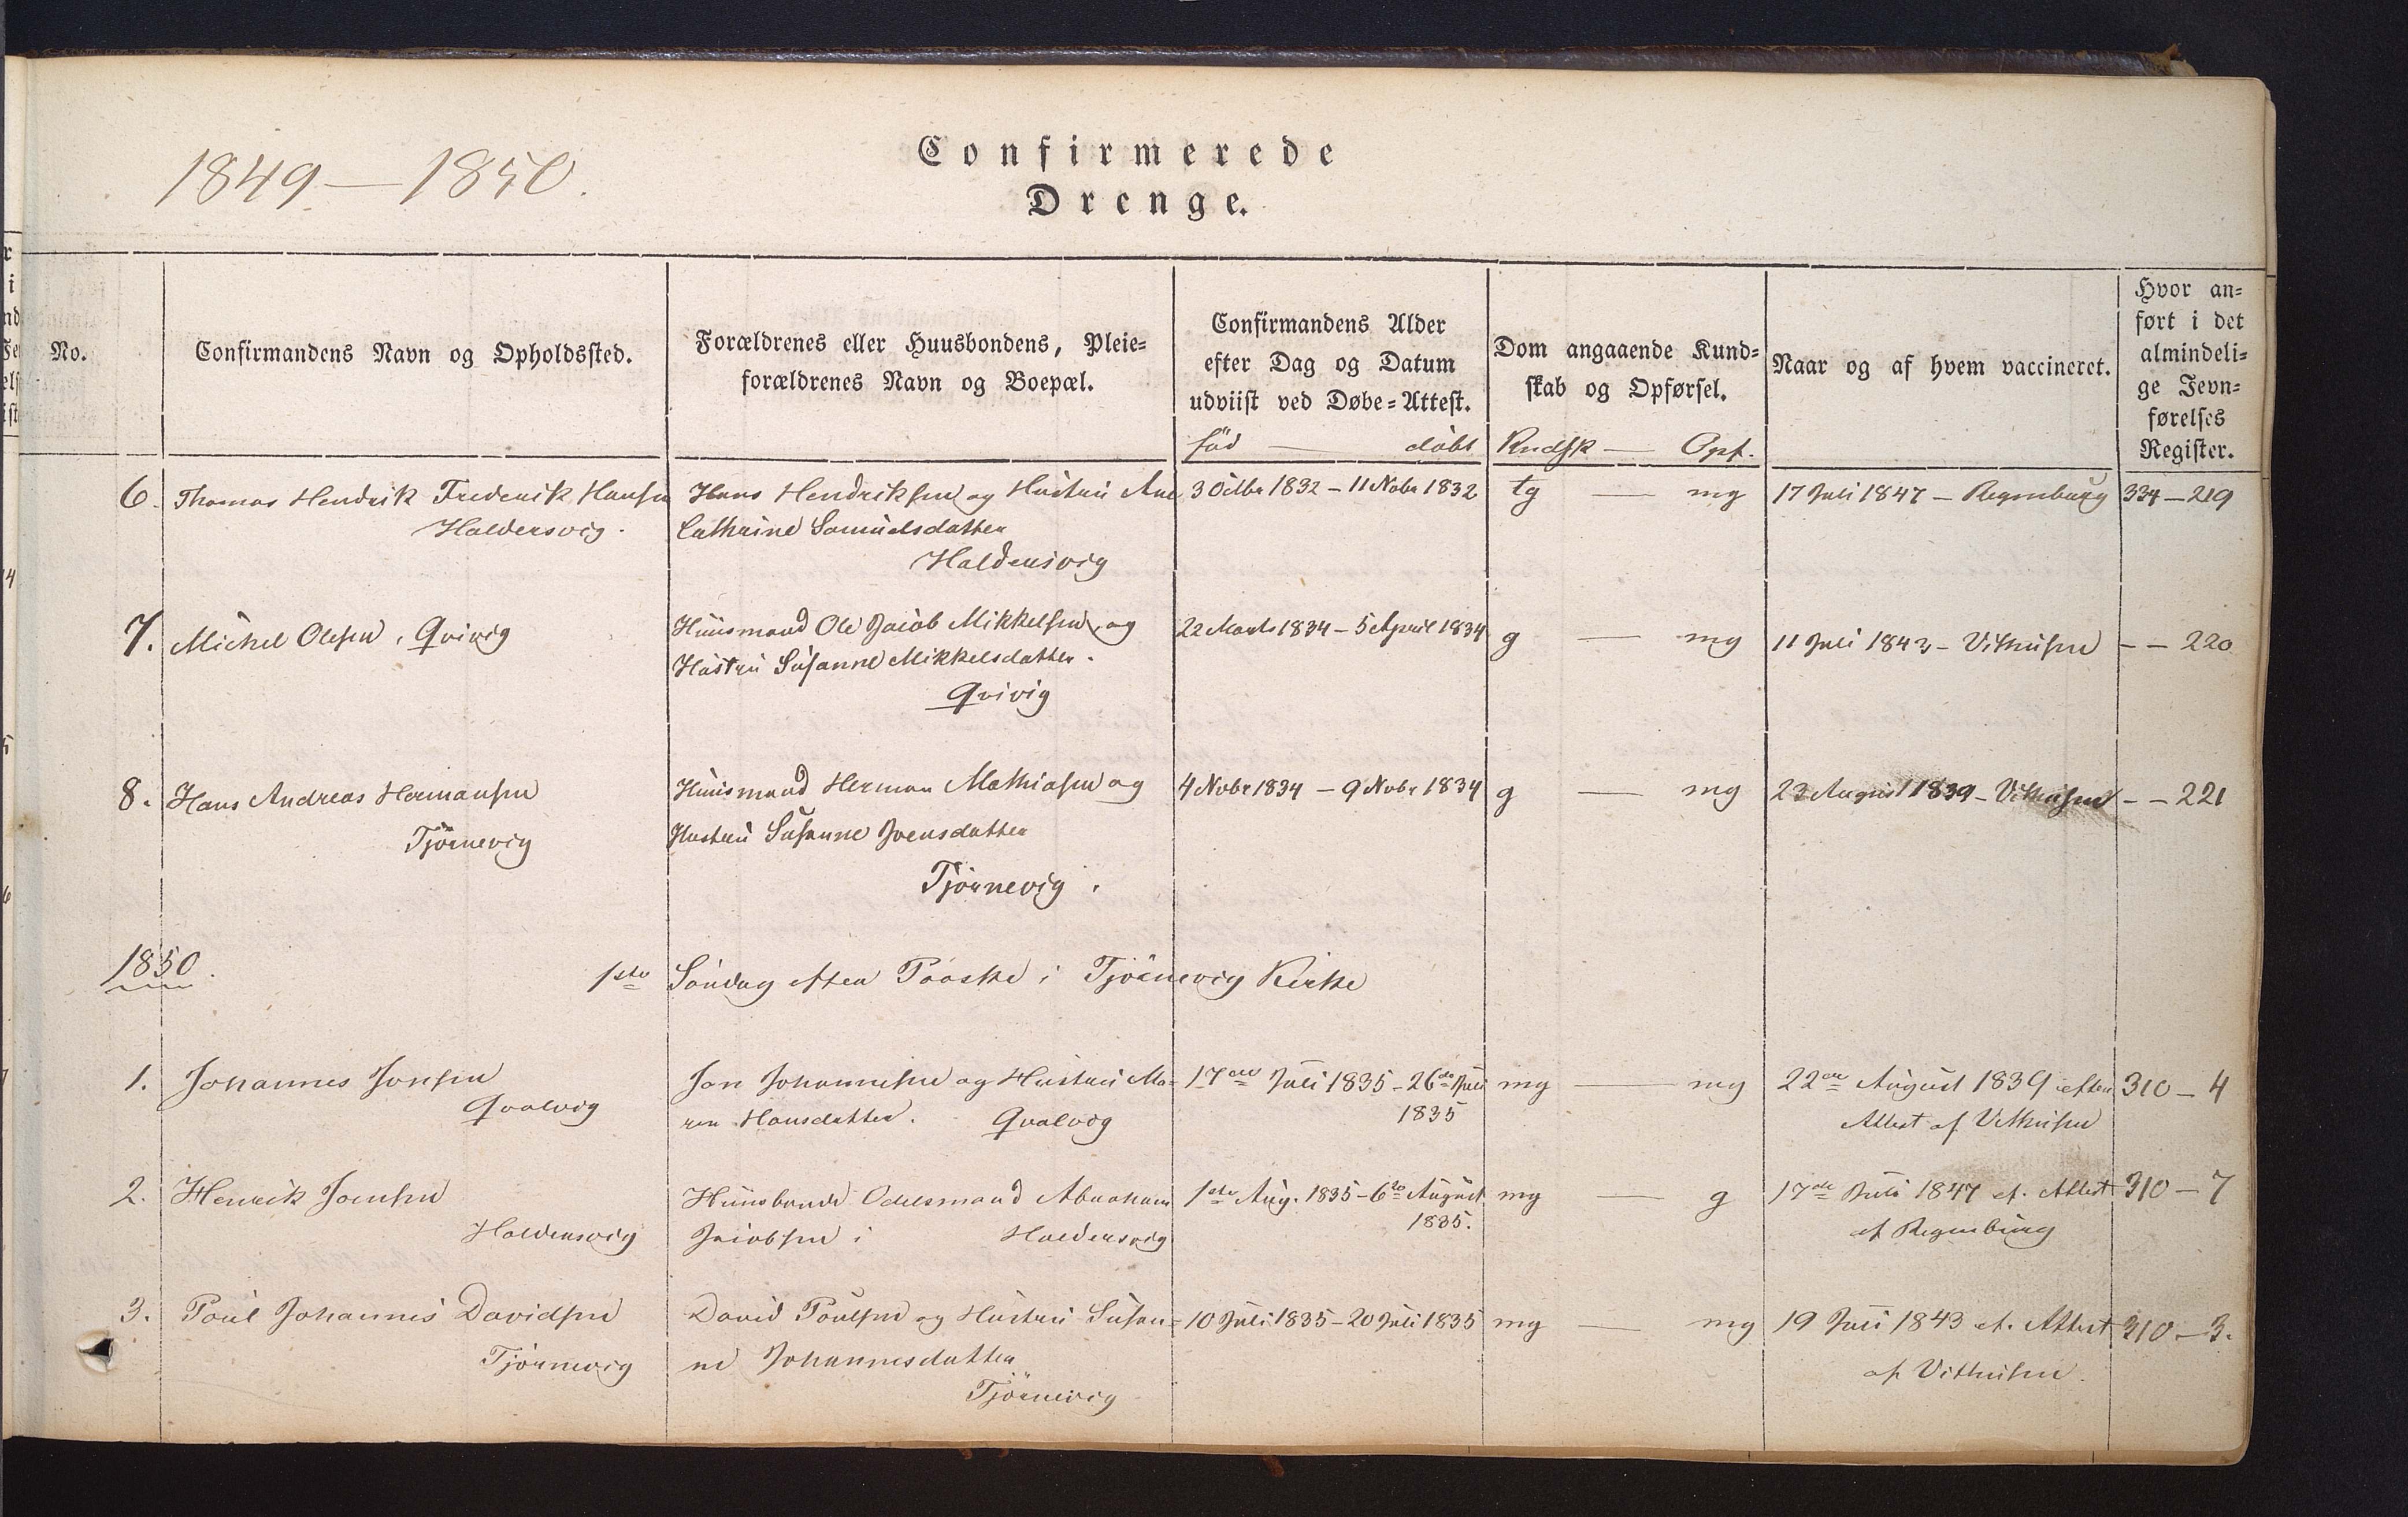 1849 — 1850.
Confirmerede
Drenge.
No.
Confirmandens Navn og Opholdssted.
Forældrenes eller Huusbondens, Pleie=
forældrenes Navn og Boepæl.
Confirmandens Alder
efter Dag og Datum
udviist ved Døbe=Attest.
Dom angaaende Kund=
skab og Opførsel.
Naar og af hvem vaccineret.
Hvor an=
ført i det
almindeli=
ge Jevn=
førelses
Register.
föd — döbt
Kndsk — Opf.
6. Thomas Hendrik Frederik Hansen
Haldersvig.
Hans Hendriksen og Hustru Ane
Cathrine Samuelsdatter
Haldersvig
3 Octbr 1832 — 11 Nobr 1832
tg — mg
17 Juli 1847 — Regenburg
334 — 219
7. Michel Olesen, Qvivig
Huusmand Ole Jacob Mikkelsen, og
Hustru Susanne Mikkelsdatter.
Qvivig
22 Marts 1834 — 5 April 1834
g — mg
11 Juli 1843 —
— — 220
8. Hans Andreas Hermansen
Tjörnevig
Huusmand Herman Mathiasen og
Hustru Susanne Joensdatter
Tjörnevig.
4 Nvbr 1834 — 9 Nvbr 1834
g — mg
23 August 1839 —
— — 221
1850.
1ste Söndag efter Paaske i Tjörnevig Kirke
1. Johannes Jonsen
Qvalvig
Jon Johannesen og Hustru Ma=
ren Hansdatter. Qvalvig
17de Juli 1835 — 26de Juli
1835
mg — mg
22de August 1839 efter
Attest af
310 — 4
2. Henrik Joensen
Haldersvig
Huusbonde Odelsmand Abraham
Jacobsen i Haldersvig
1ste Aug. 1835 — 6te August
1835.
mg — g
17de Juli 1847 ef. Attest
af Regenburg
310 — 7
3. Poul Johannes Davidsen
Tjörnevig
David Poulsen og Hustru Susan=
ne Johannesdatter
Tjörnevig
10 Juli 1835 — 20 Juli 1835
mg — mg
19 Juli 1843 ef. Attest
af
310 — 3.